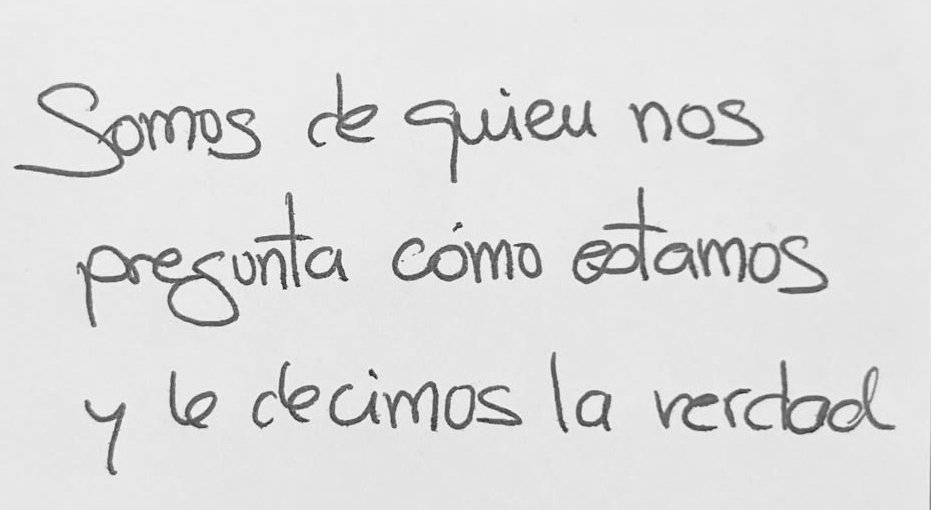 Somos de quien nos
pregunta cómo estamos
y le decimos la verdad